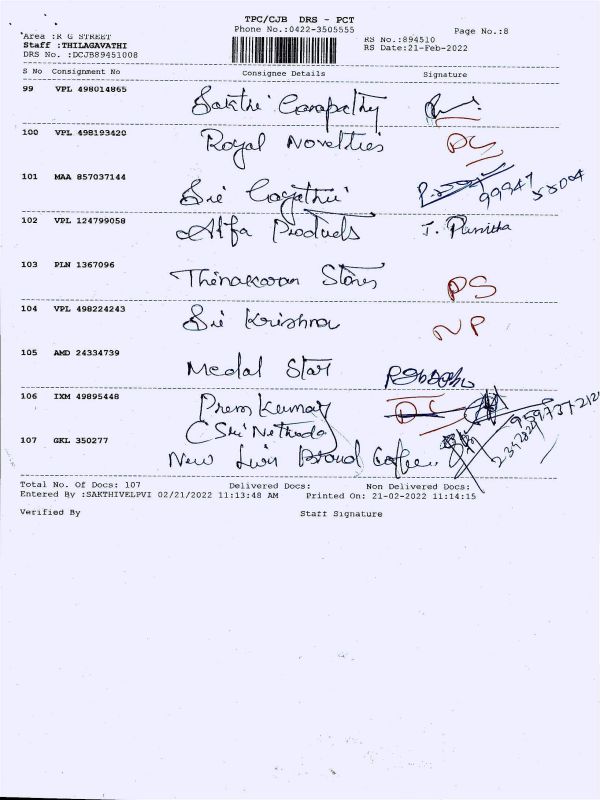 TPC/CJB DRS - PCT
Area :R G STREET Phone No.:0422-3505555 Page No.:8
Staff :THILAGAVATHI RS No.:894510
DRS No. :DCJB89451008 RS Date:21-Feb-2022
S No Consignment No Consignee Details Signature
99 VPL 498014865 Sakthi Ganapathy
100 VPL 498193420 Royal Novelties
101 MAA 857037144 Sri Gayathri 99947 55004
102 VPL 124799058 Alfa Products J. Punitha
103 PLN 1367096 Thinakaran Stores PS
104 VPL 498224243 Sri Krishna NP
105 AMD 24334739 Medal Star
106 IXM 49895448 Prem Kumar
(Sri Nethada
107 GKL 350277 New Lion Brand Coffee
Total No. Of Docs: 107 Delivered Docs: Non Delivered Docs:
Entered By :SAKTHIVELPVI 02/21/2022 11:13:48 AM Printed On: 21-02-2022 11:14:15
Verified By Staff Signature